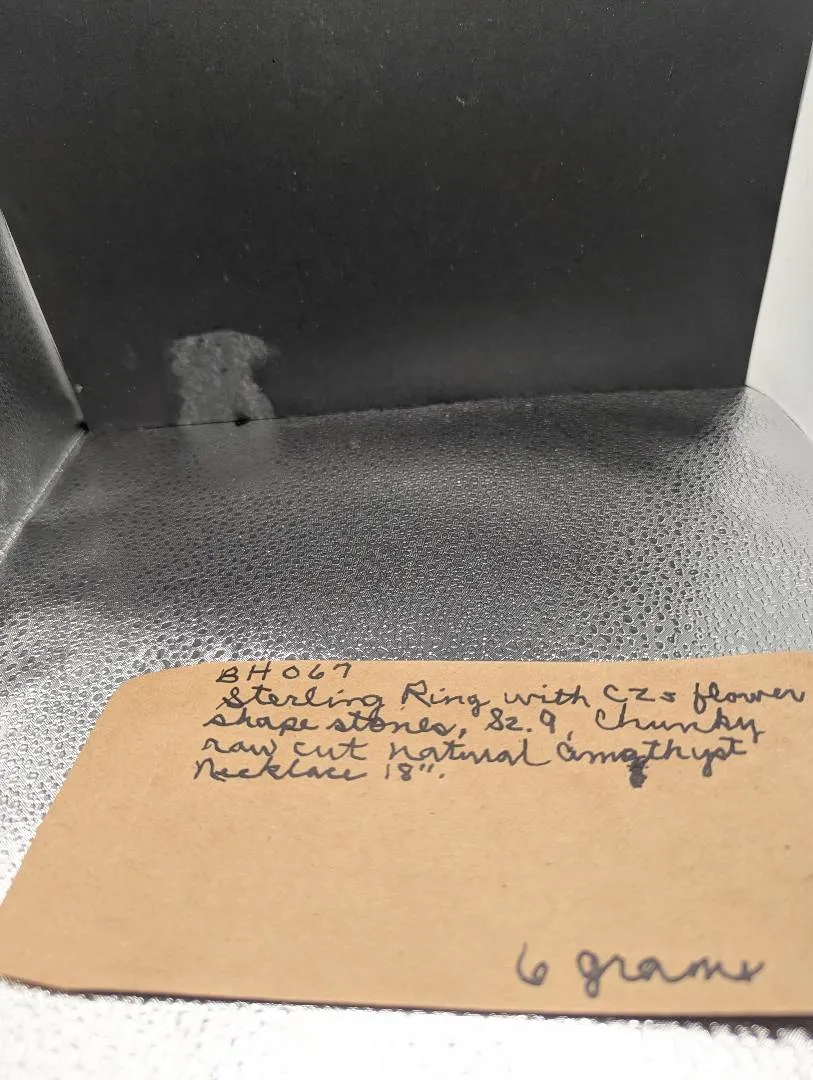 BH067
Sterling Ring with CZs flower
shape stones, Sz. 9, Chunky
raw cut natural amathyst
Necklace 18".
6 grams